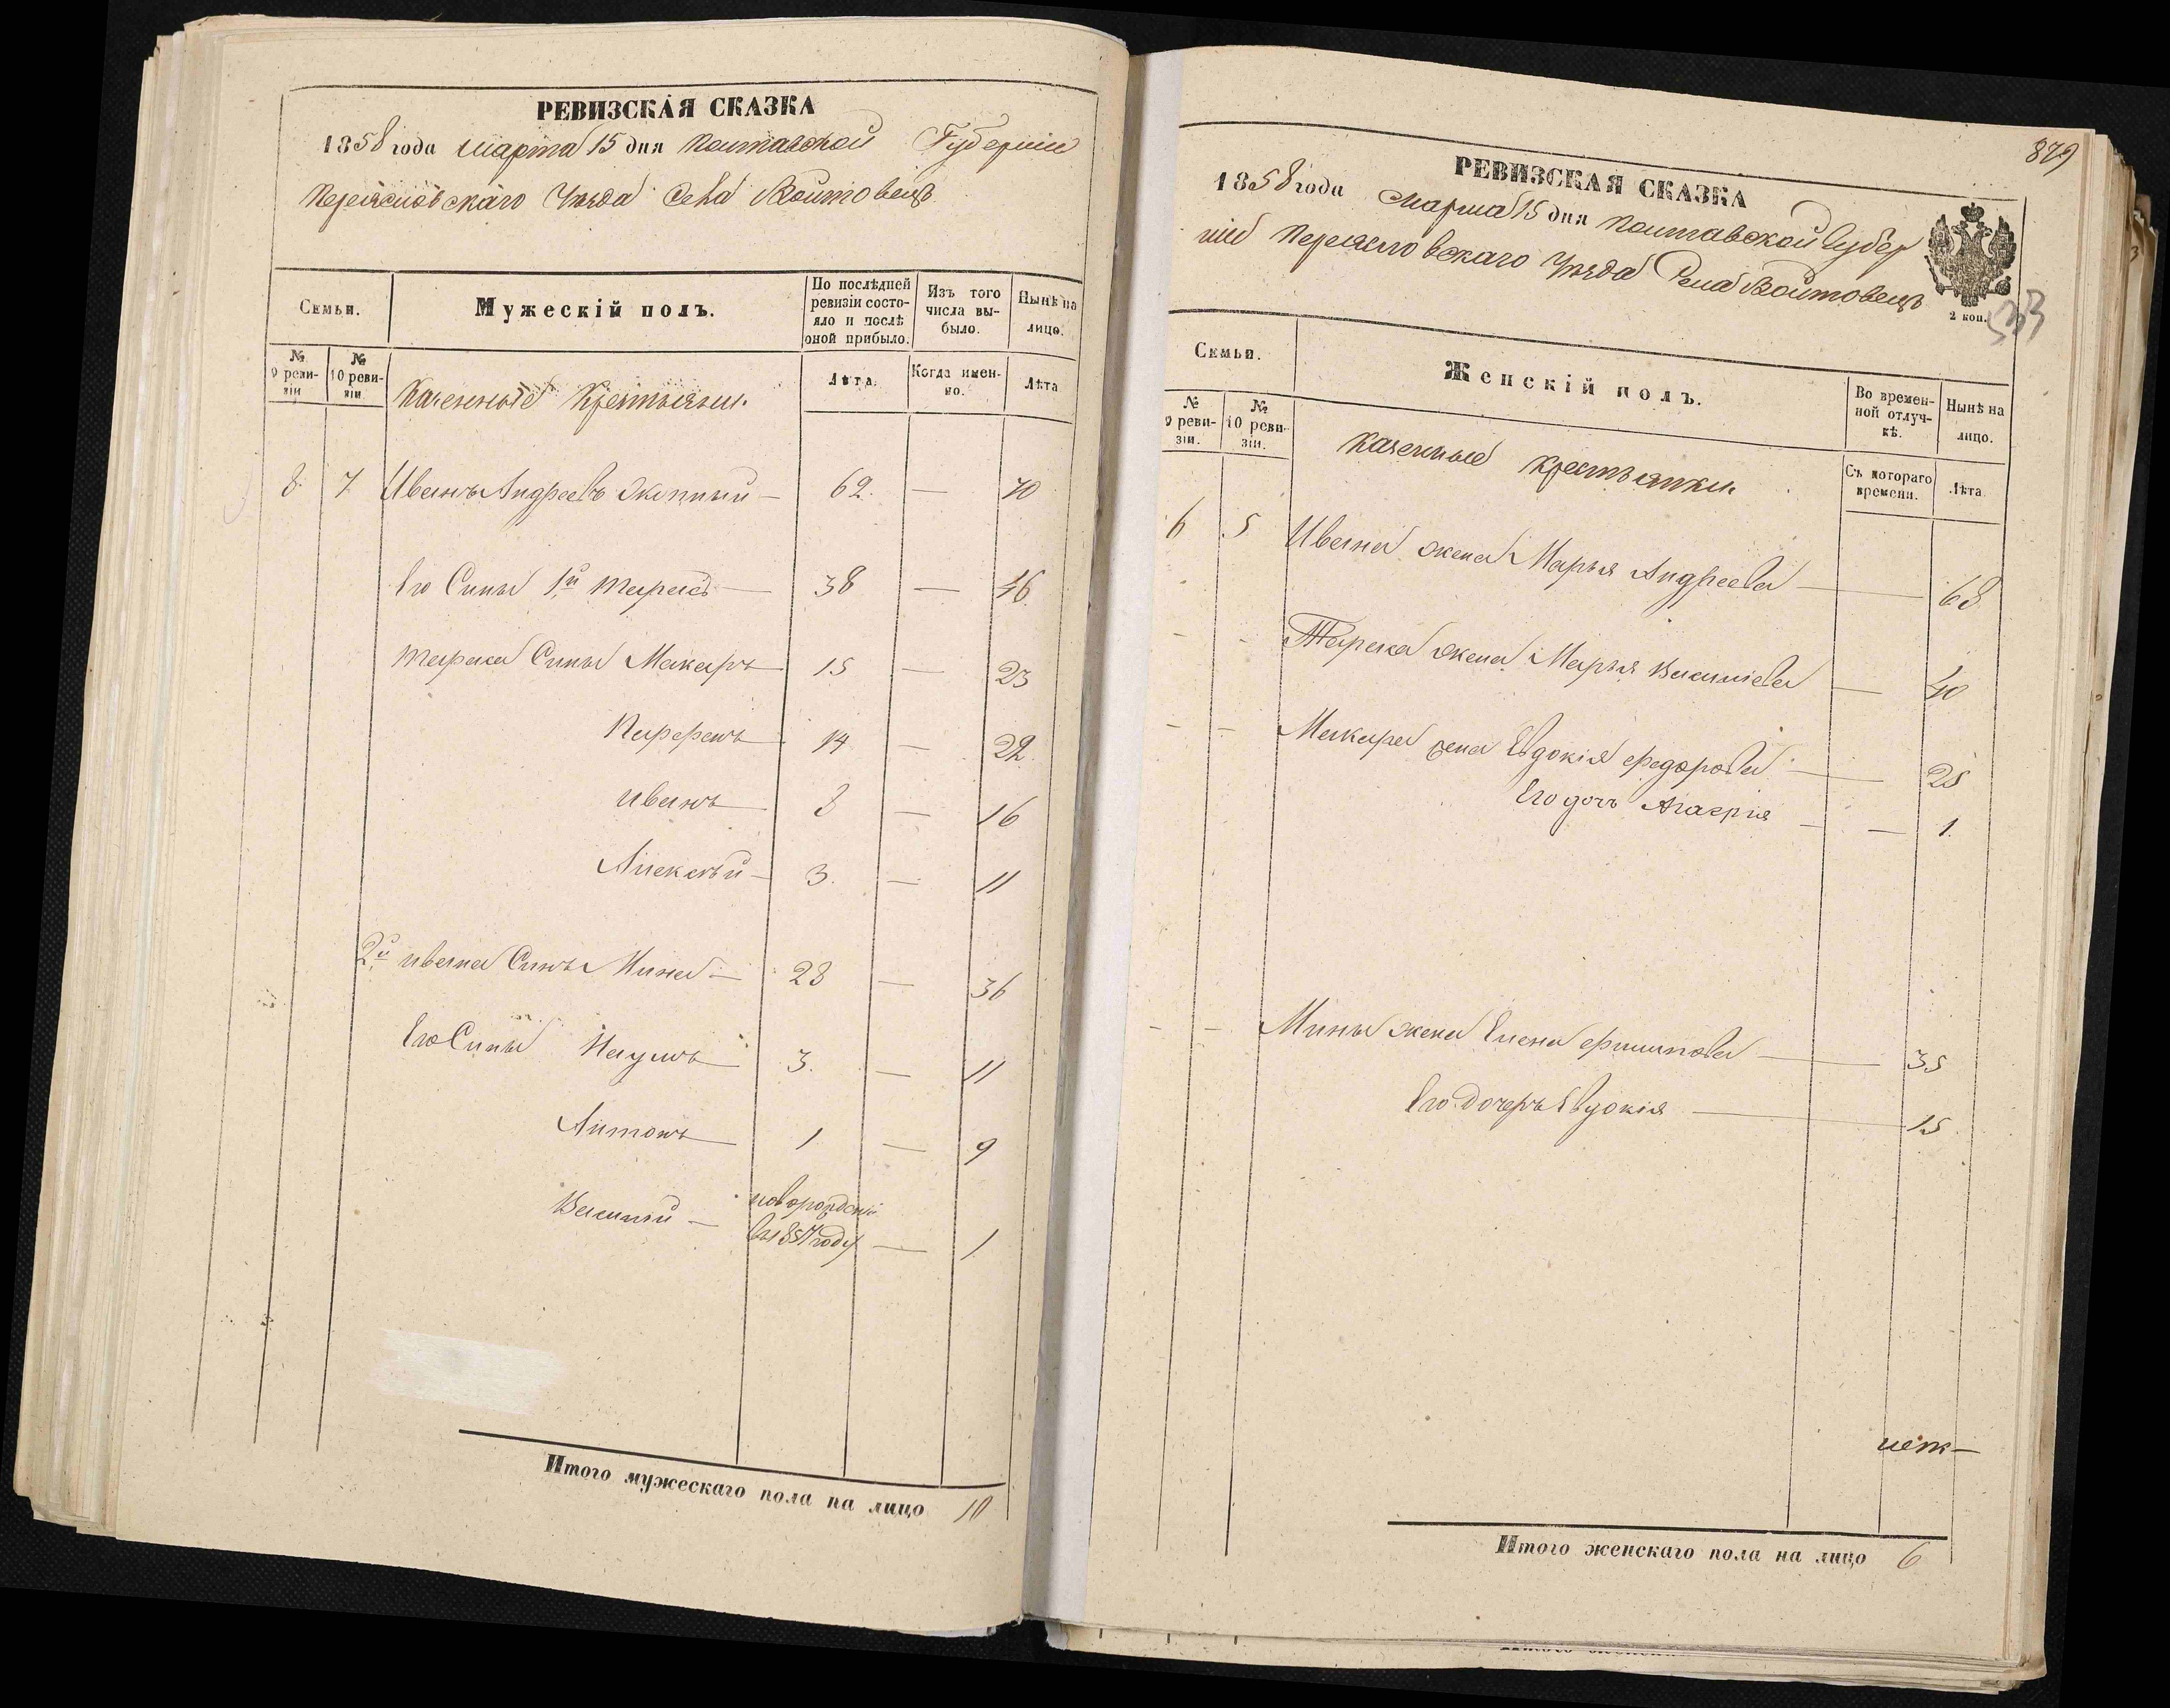 РЕВИЗСКАЯ СКАЗКА
1858 года марта 15 дня Полтавской Губернии
Переяславскаго Уезда Села Войтовецъ
Семьи.
Мужескій полъ.
По послѣдней ревизіи состояло и послѣ оной прибыло.
Изъ того числа выбыло.
Нынѣ на лицо.
№ 9 ревизіи
№ 10 ревизіи
Казенные Крестьяни.
Лѣта.
Когда именно.
Лѣта
8. 7. Иванъ Андреевъ — 62. — 70
Его Сины 1й Тарасъ — 38 — 46
Тараса Сины Макаръ 15 — 23
Парфенъ 14 — 22
Иванъ 8 — 16
Алексѣй — 3. — 11
2й Ивана Синъ Мина — 28 — 36
Его Сины Наумъ 3. — 11
Антонъ 1 — 9
Василій — новорожденый
въ 1857 году — 1
Итого мужескаго пола на лицо 10
879
РЕВИЗСКАЯ СКАЗКА
1858 года Марта 15 дня Полтавской Губер
ніи Переясловскаго Уезда Села Войтовецъ
2 коп.
Семьи.
Женскій полъ.
Во временной отлучкѣ.
Нынѣ на лицо.
№ 9 ревизіи.
№ 10 ревизіи.
Казенные Крестьянки
Съ котораго времени.
Лѣта.
6 5 Ивана жена Марья Андреева — 68
- - Тараса жена Марья Василіева — 40
- - Макара жена Евдокія Федорова — 25
Его дочъ Агафія — — 1.
- - Мины жена Елена Филипова — 35
Его дочеръ Евдокія — 15
Итого женскаго пола на лицо 6